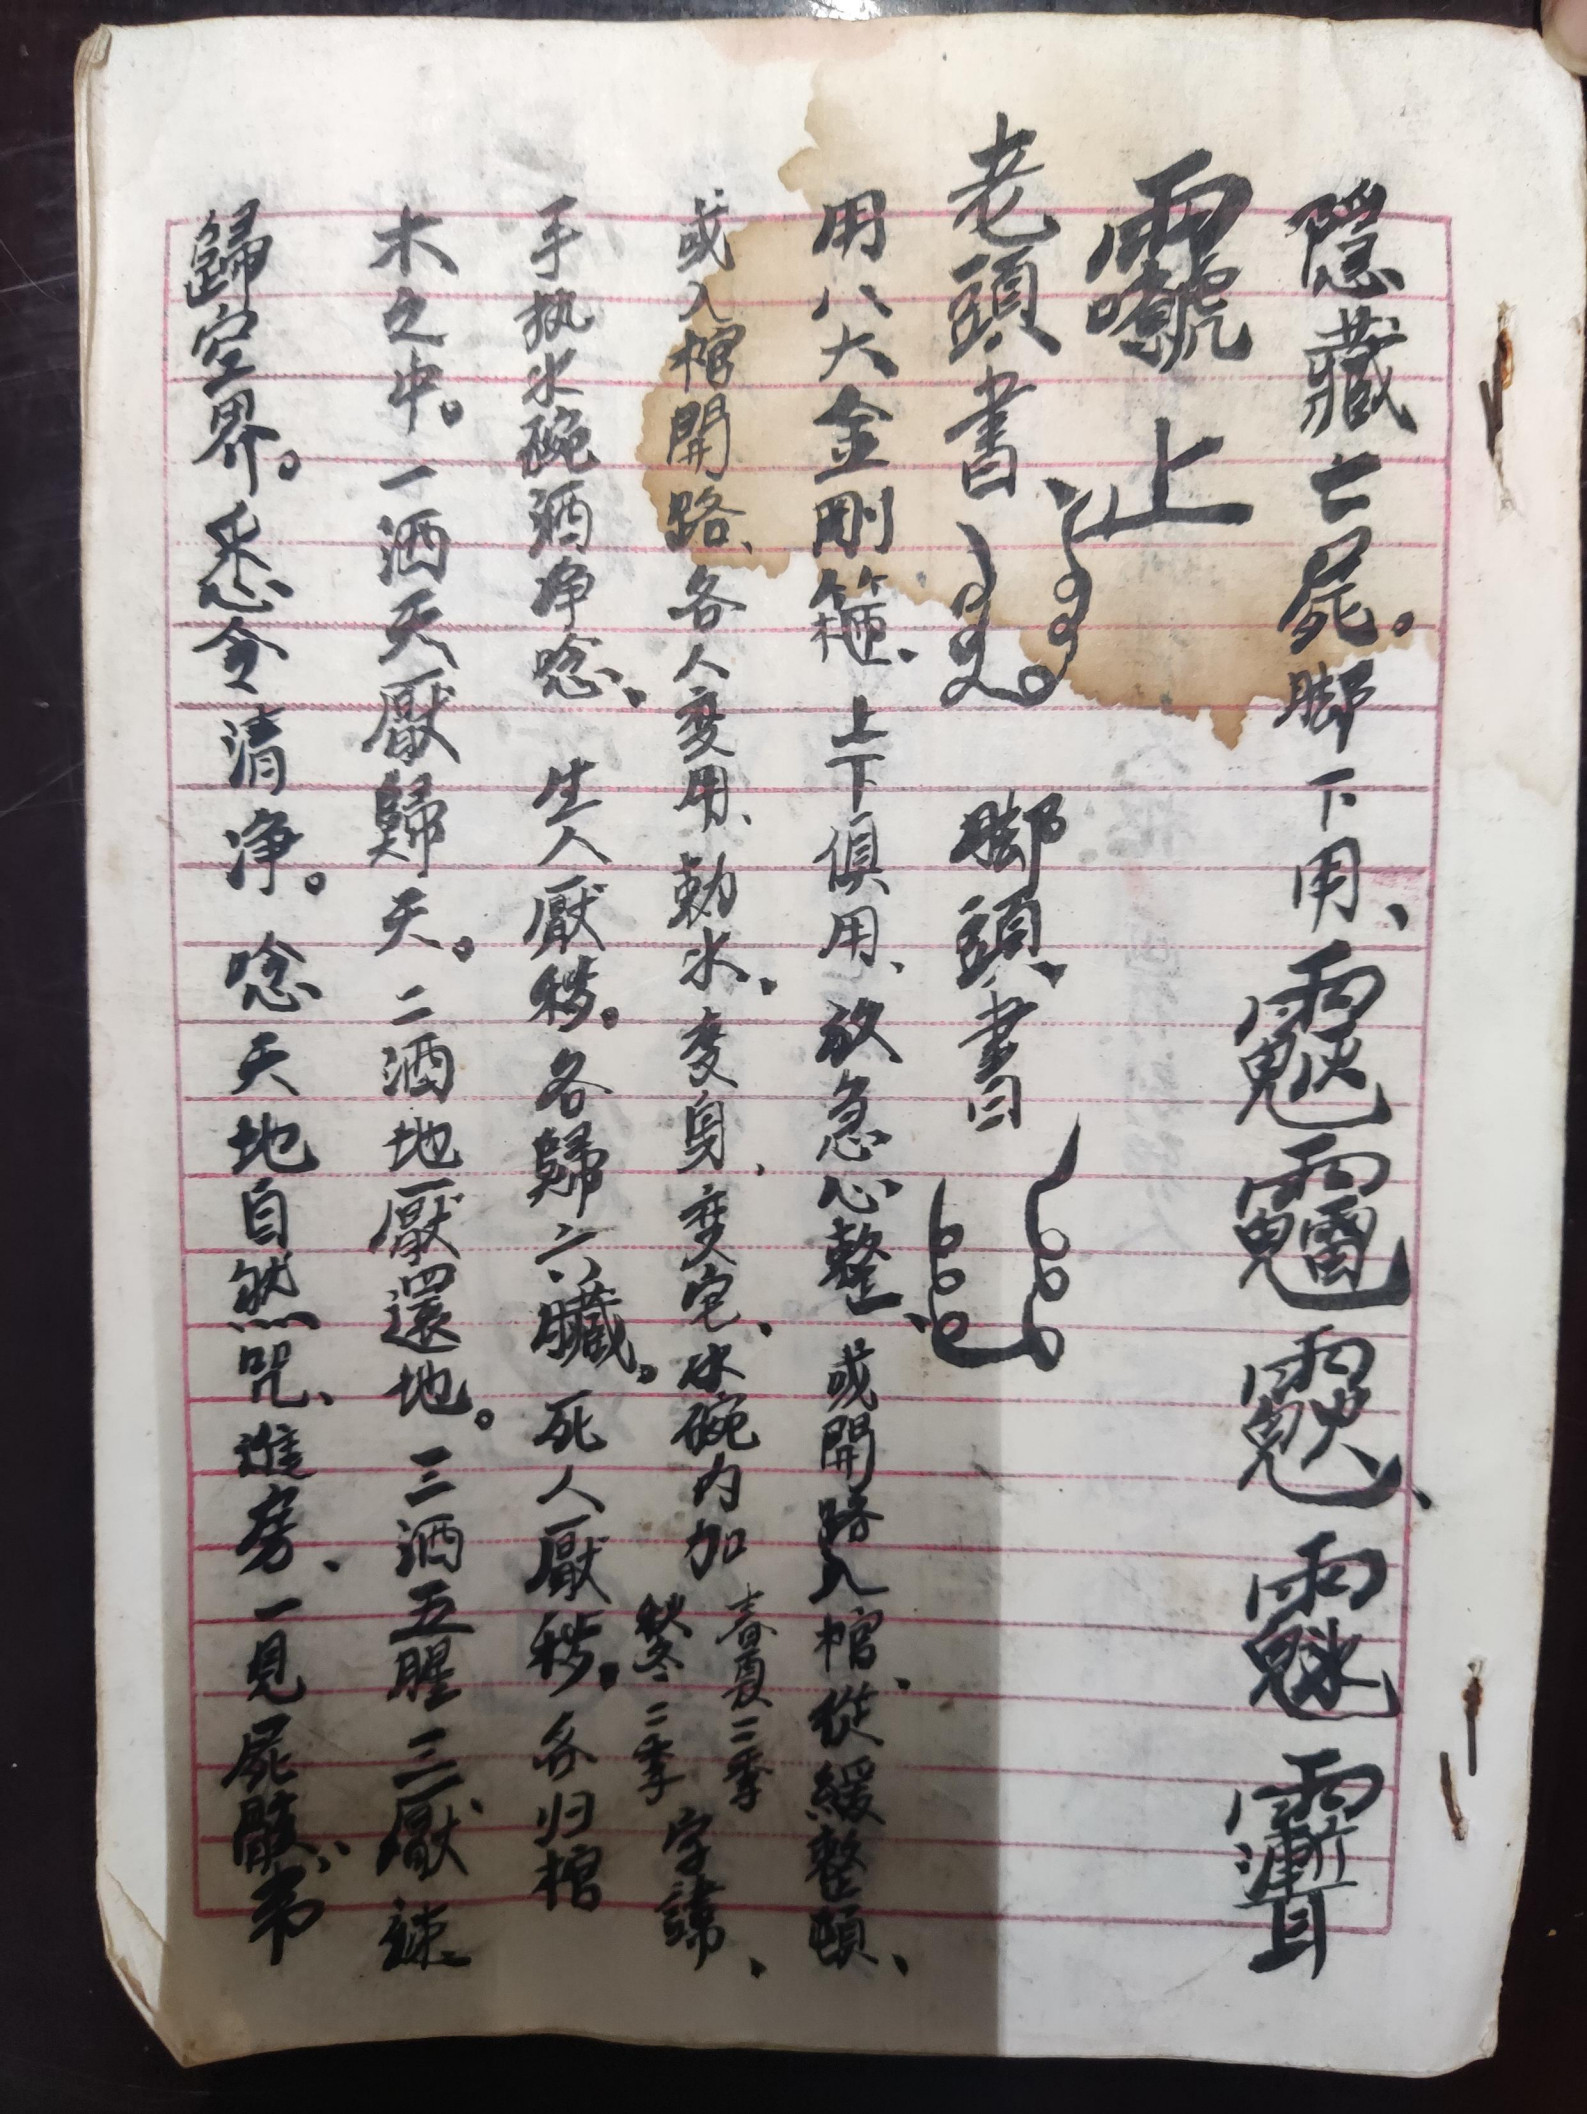 隱藏亡屍。脚下用、
上
老頭書、 脚頭書
用八大金剛箍、上下俱用、放急心整、或開路入棺、從緩整頓、
或入棺開路、各人变用、勅水、变身、变宅、水碗内加 春夏二季 秋冬二季 字諱、
手执水碗洒净唸、 生人厭秽。各歸六臟。死人厭秽。各归棺
木之中。一洒天厭歸天。二洒地厭還地。三洒五腥三厭
歸空界。悉令清净。唸天地自然咒、進房、一見屍骸、